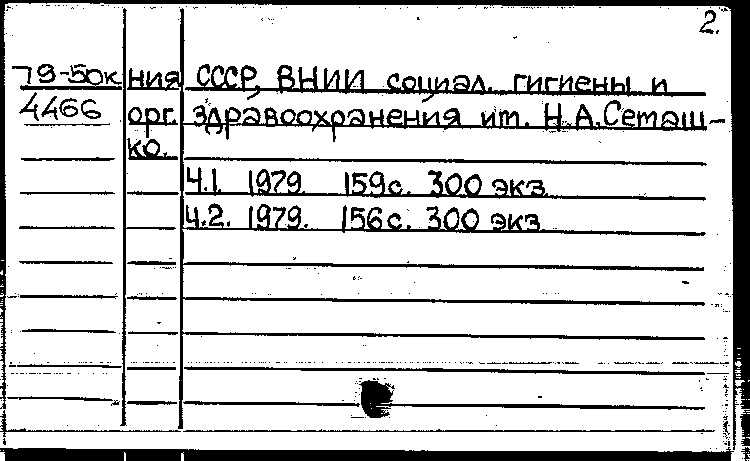 2.
79-50к ния СССР, ВНИИ социал. гигиены и
4466 орг. здравоохранения им. Н.А.Семаш-
ко.
Ч.1. 1979. 159с. 300 экз.
Ч.2. 1979. 156с. 300 экз.